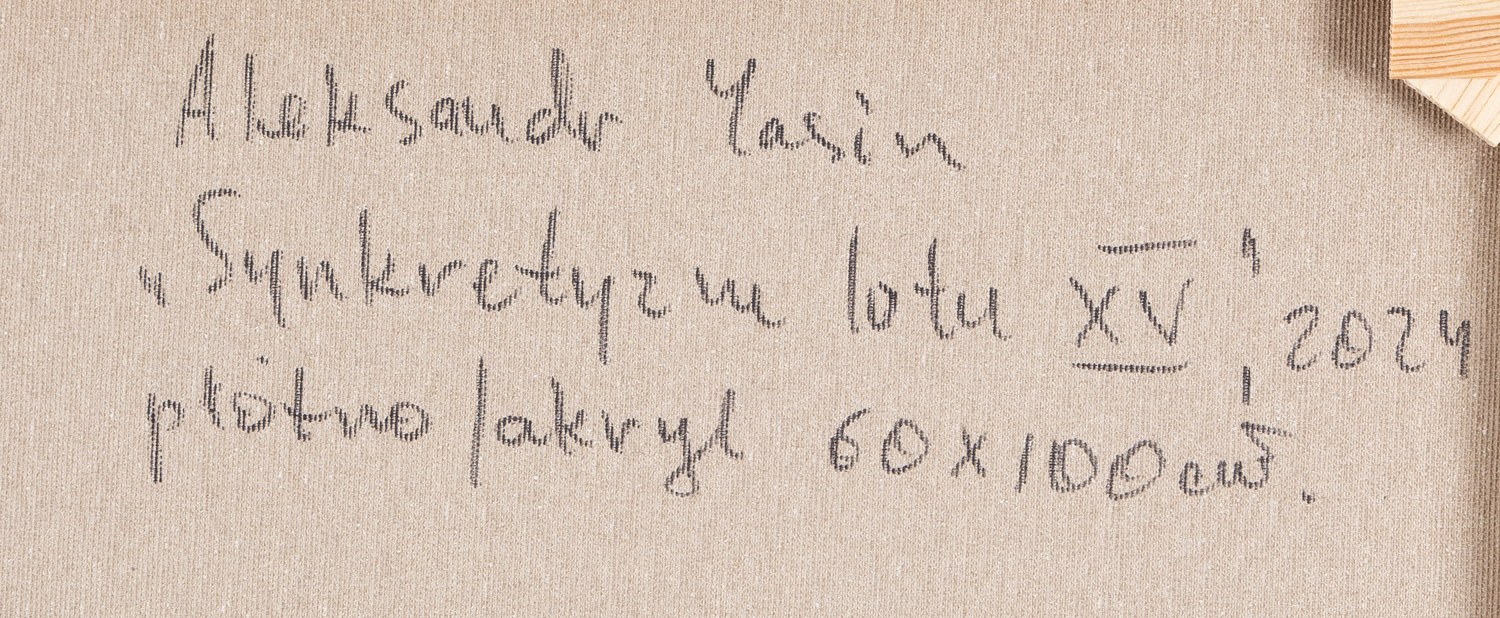 Aleksandr Yasin
„Synkretyzm lotu XV", 2024
płótno/akryl 60x100cm.